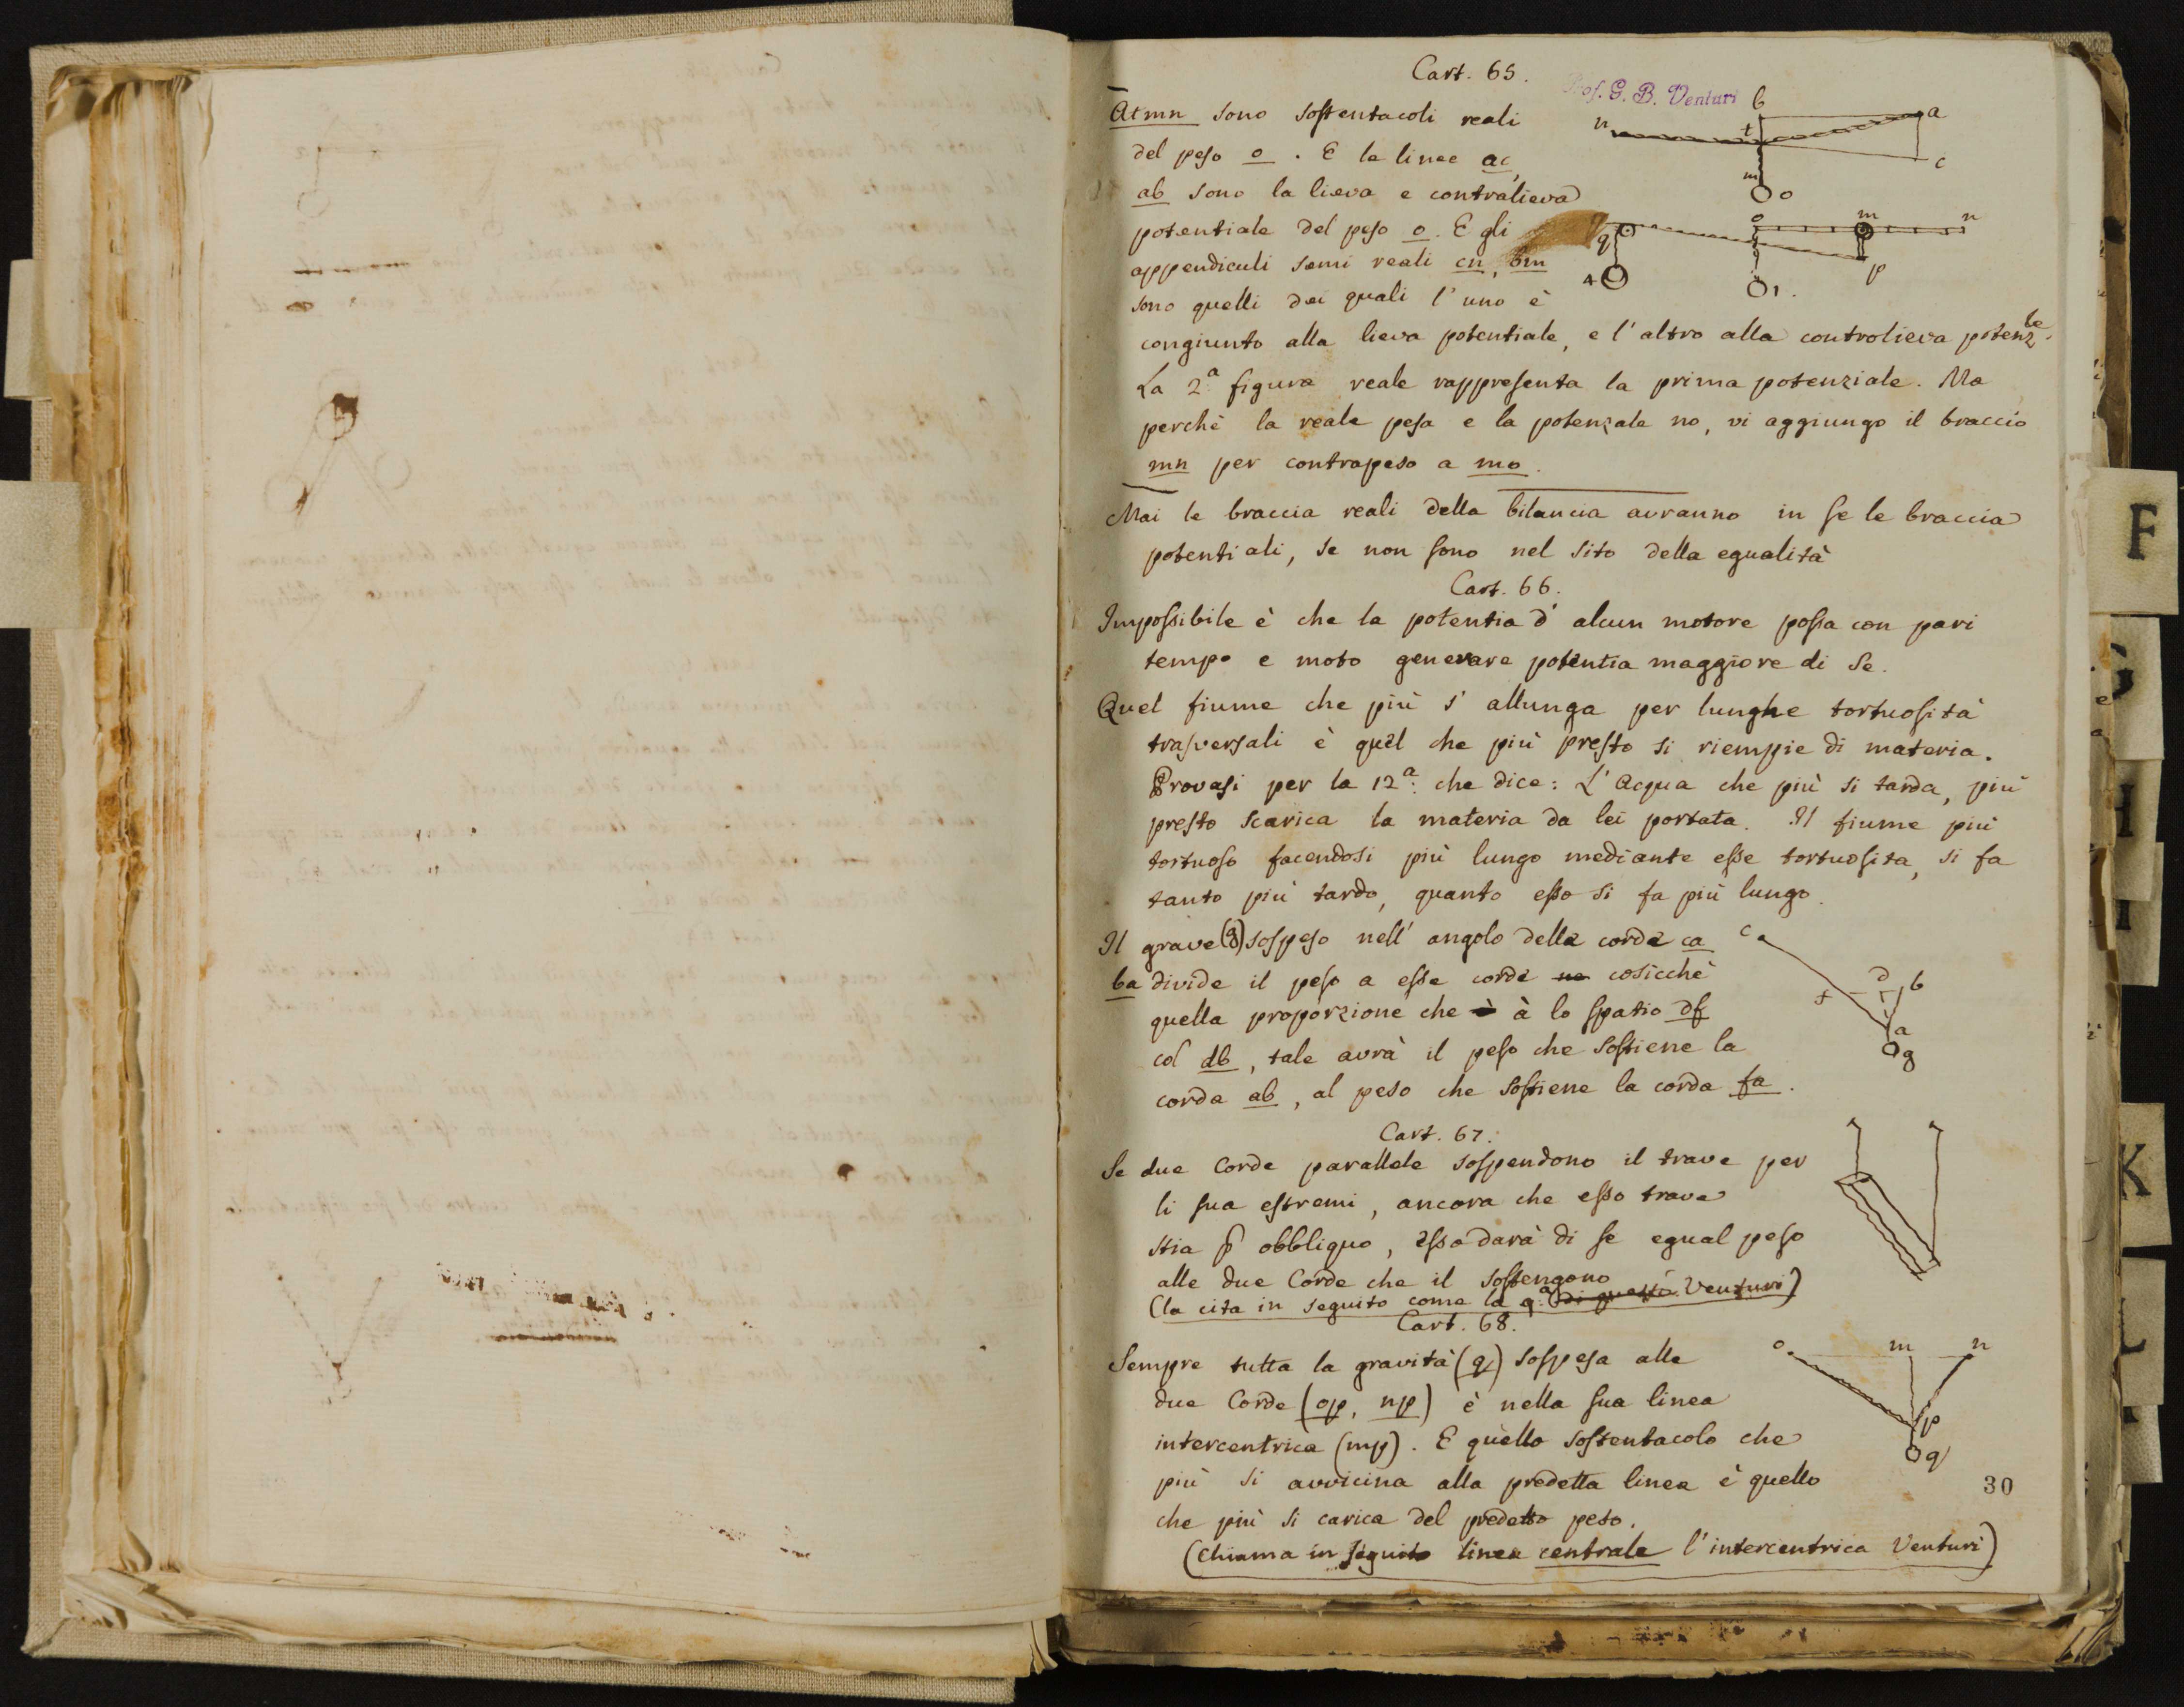 Cart. 65.
Prof. G. B. Venturi
Atmn sono sostentacoli reali
del peso o. E le linee ac,
ab sono la lieva e contralieva
potentiale del peso o. E gli
appendiculi semi reali cn, bm
sono quelli dei quali l'uno è
congiunto alla lieva potentiale, e l'altro alla controlieva potenz.le
La 2.a figura reale rappresenta la prima potenziale. Ma
perchè la reale pesa e la potenzale no, vi aggiungo il braccio
mn per contrapeso a mo.
Mai le braccia reali della bilancia avranno in se le braccia
potentiali, se non sono nel sito della egualità
Cart. 66.
Impossibile è che la potentia d'alcun motore possa con pari
tempo e moto generare potentia maggiore di se.
Quel fiume che più s'allunga per lunghe tortuosità
trasversali è quel che più presto si riempie di materia.
Provasi per la 12.a che dice: L'Acqua che più si tarda, più
presto scarica la materia da lei portata. Il fiume più
tortuoso facendosi più lungo mediante esse tortuosita, si fa
tanto più tardo, quanto esso si fa più lungo.
Il grave (g) sospeso nell'angolo delle corde ca
ba divide il peso a esse corde ne cosicchè
quella proporzione che è à lo spatio df
col db, tale avrà il peso che sostiene la
corda ab, al peso che sostiene la corda fa.
Cart. 67.
Se due Corde parallele sospendono il trave per
li sua estremi, ancora che esso trave
stia obbliquo, esso darà di se egual peso
alle due Corde che il sostengono
(la cita in seguito come la 9.a di questo Venturi)
Cart. 68.
Sempre tutta la gravità (q) sospesa alle
due Corde (op, np) è nella sua linea
intercentrica (mp). E quello sostentacolo che
più si avvicina alla predetta linea è quello
che più si carica del predetto peso.
(Chiama in seguito linea centrale l'intercentrica Venturi)
30
b
a
n
t
c
m
o
q
o
m
n
4
1.
p
c
d
b
f
a
g
o
m
n
p
q
F
H
K